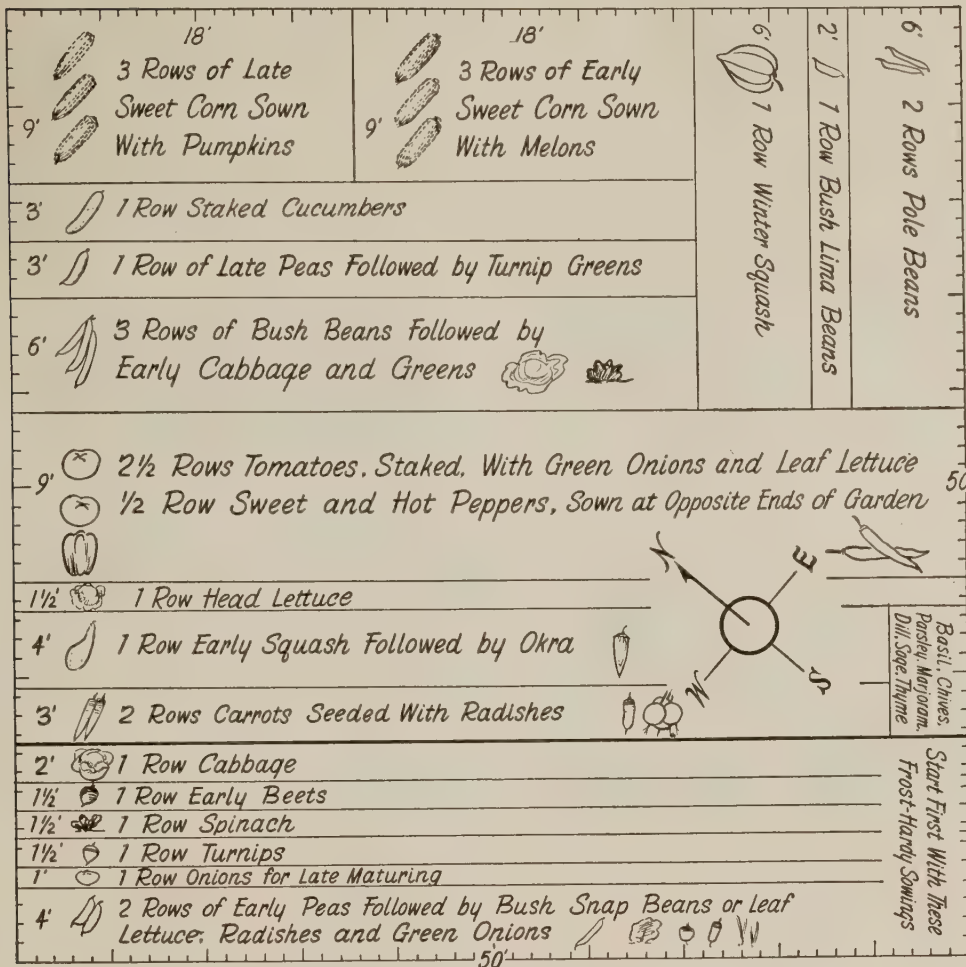 18'
9'
3 Rows of Late
Sweet Corn Sown
With Pumpkins
18'
9'
3 Rows of Early
Sweet Corn Sown
With Melons
6'
1 Row Winter Squash
2'
1 Row Bush Lima Beans
6'
2 Rows Pole Beans
3' 1 Row Staked Cucumbers
3' 1 Row of Late Peas Followed by Turnip Greens
6'
3 Rows of Bush Beans Followed by
Early Cabbage and Greens
9'
2½ Rows Tomatoes. Staked. With Green Onions and Leaf Lettuce
½ Row Sweet and Hot Peppers, Sown at Opposite Ends of Garden
50'
N
E
W
S
1½' 1 Row Head Lettuce
4' 1 Row Early Squash Followed by Okra
3' 2 Rows Carrots Seeded With Radishes
Basil, Chives,
Parsley, Marjoram,
Dill, Sage, Thyme
2' 1 Row Cabbage
1½' 1 Row Early Beets
1½' 1 Row Spinach
1½' 1 Row Turnips
1' 1 Row Onions for Late Maturing
Start First With These
Frost-Hardy Sowings
4' 2 Rows of Early Peas Followed by Bush Snap Beans or Leaf
Lettuce, Radishes and Green Onions
50'